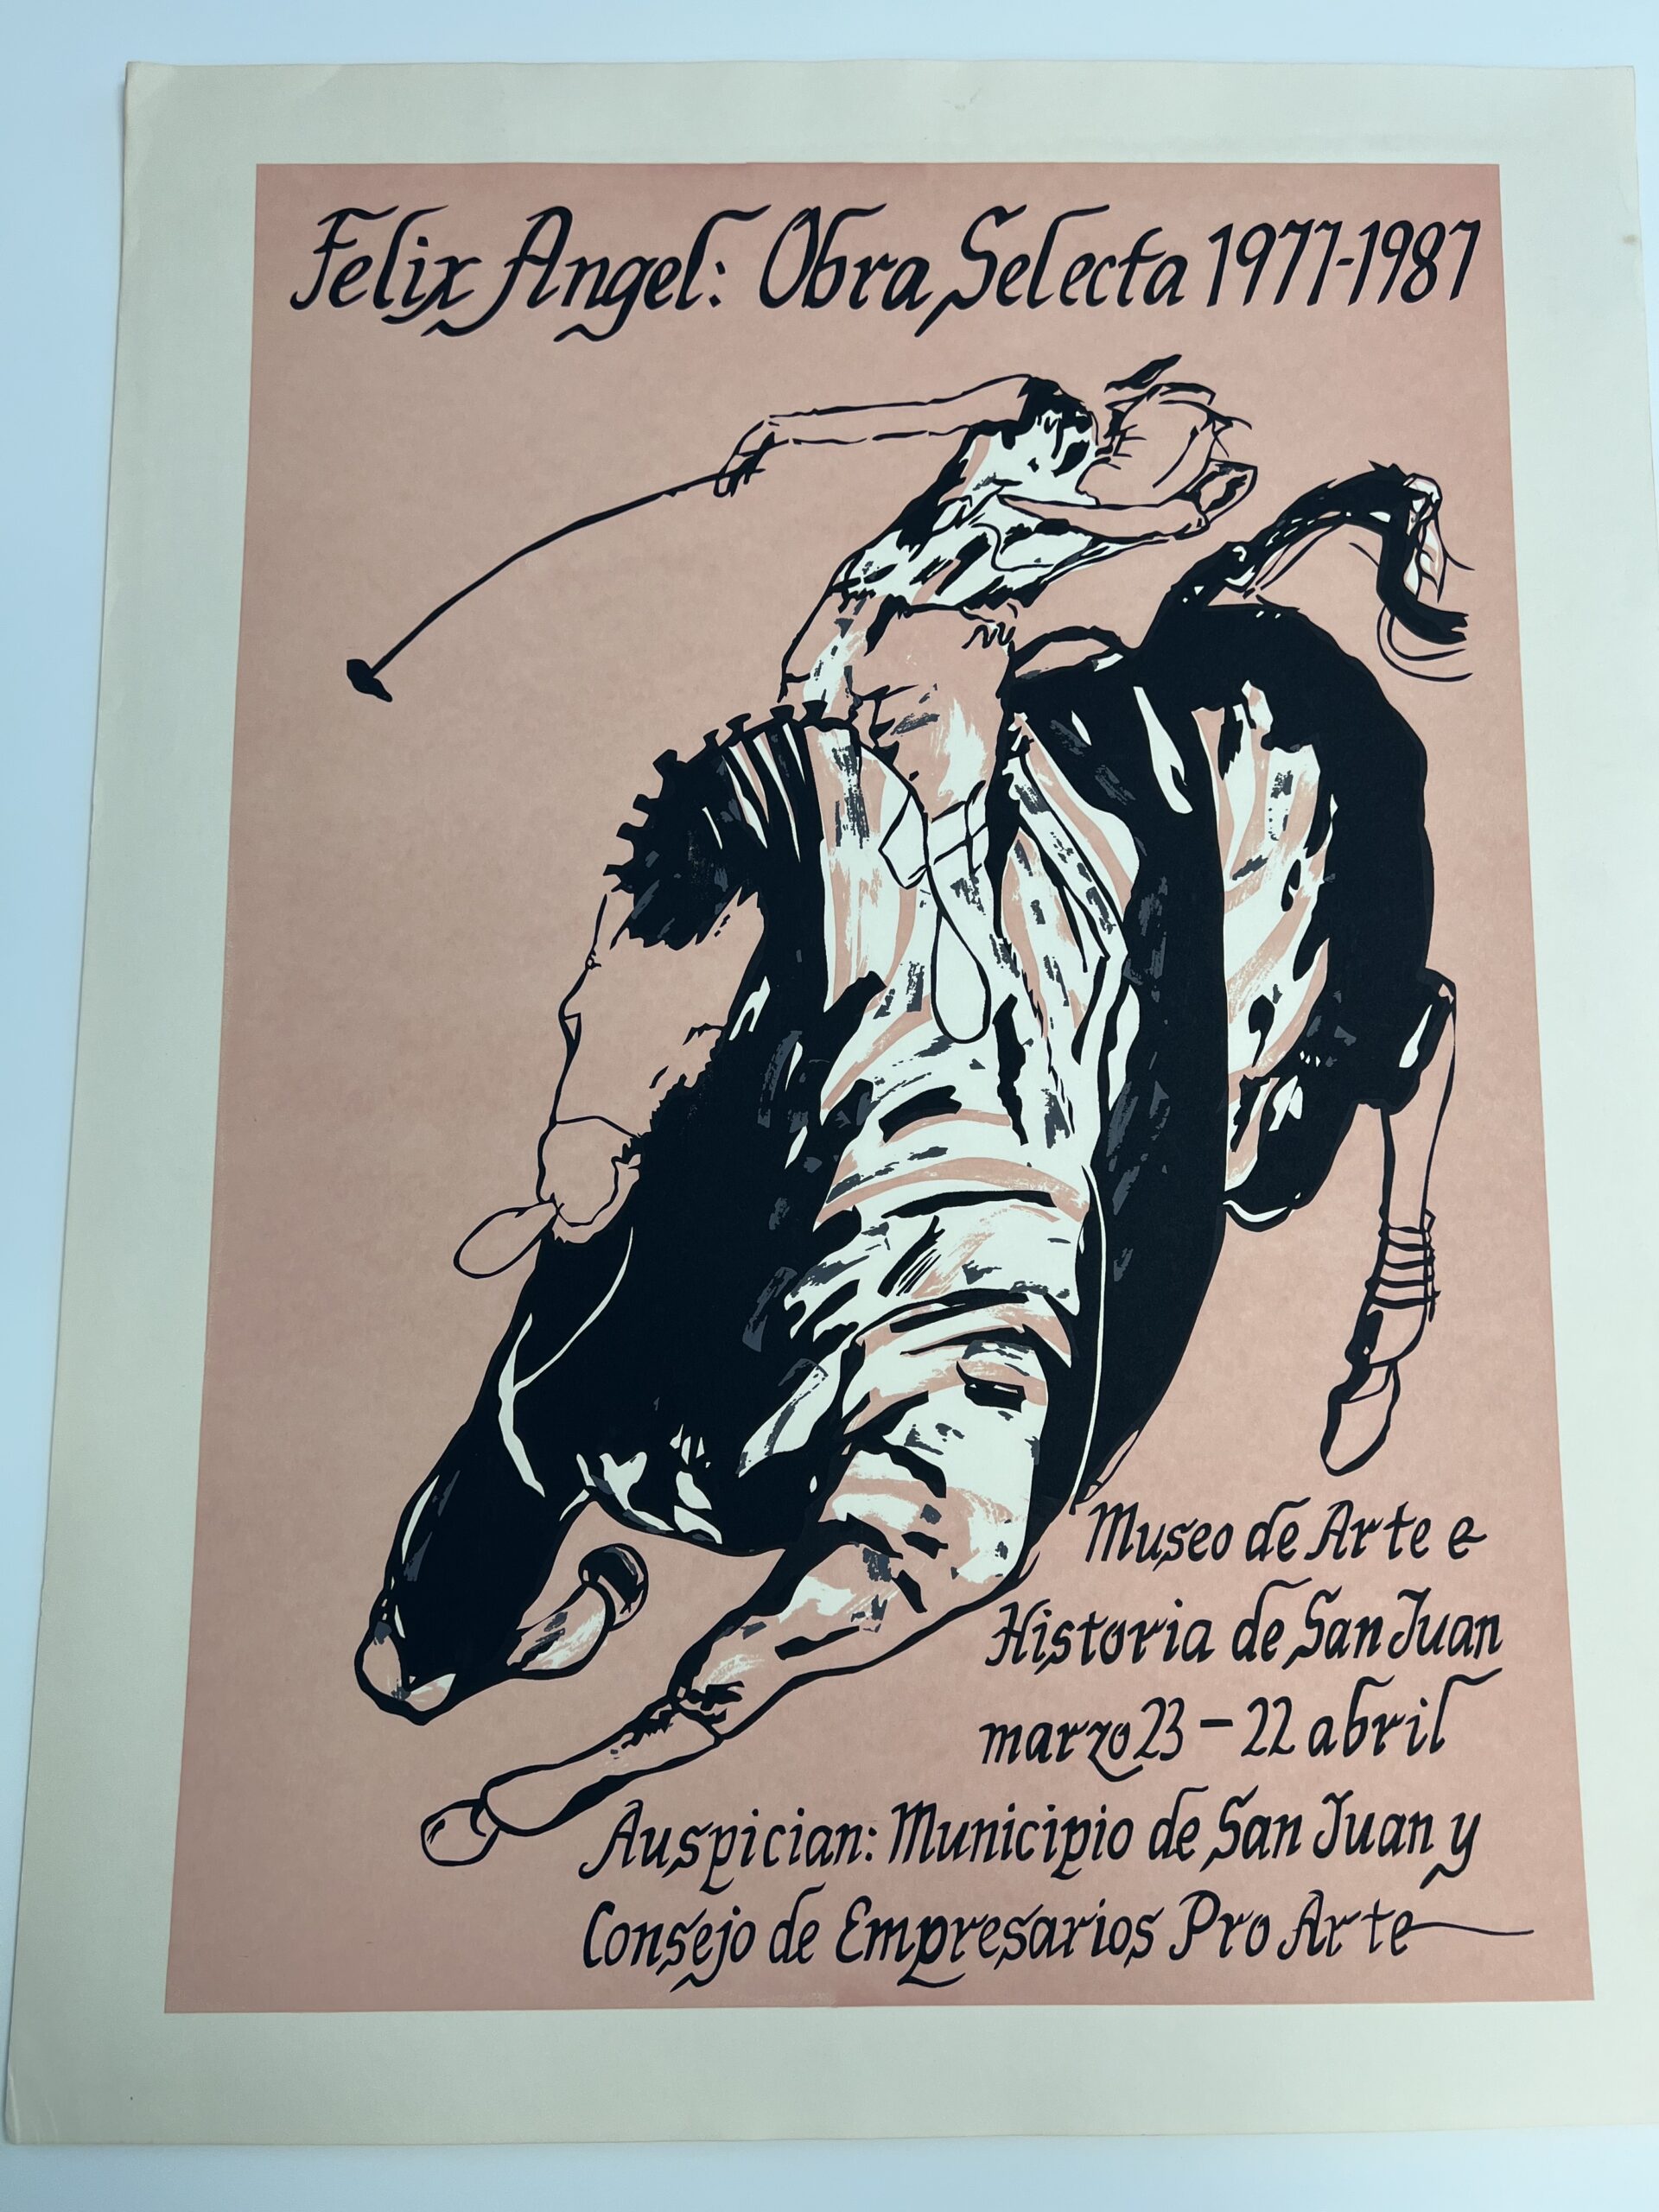 Felix Angel: Obra Selecta 1977-1987
Museo de Arte e
Historia de San Juan
marzo 23 – 22 abril
Auspician: Municipio de San Juan y
Consejo de Empresarios Pro Arte